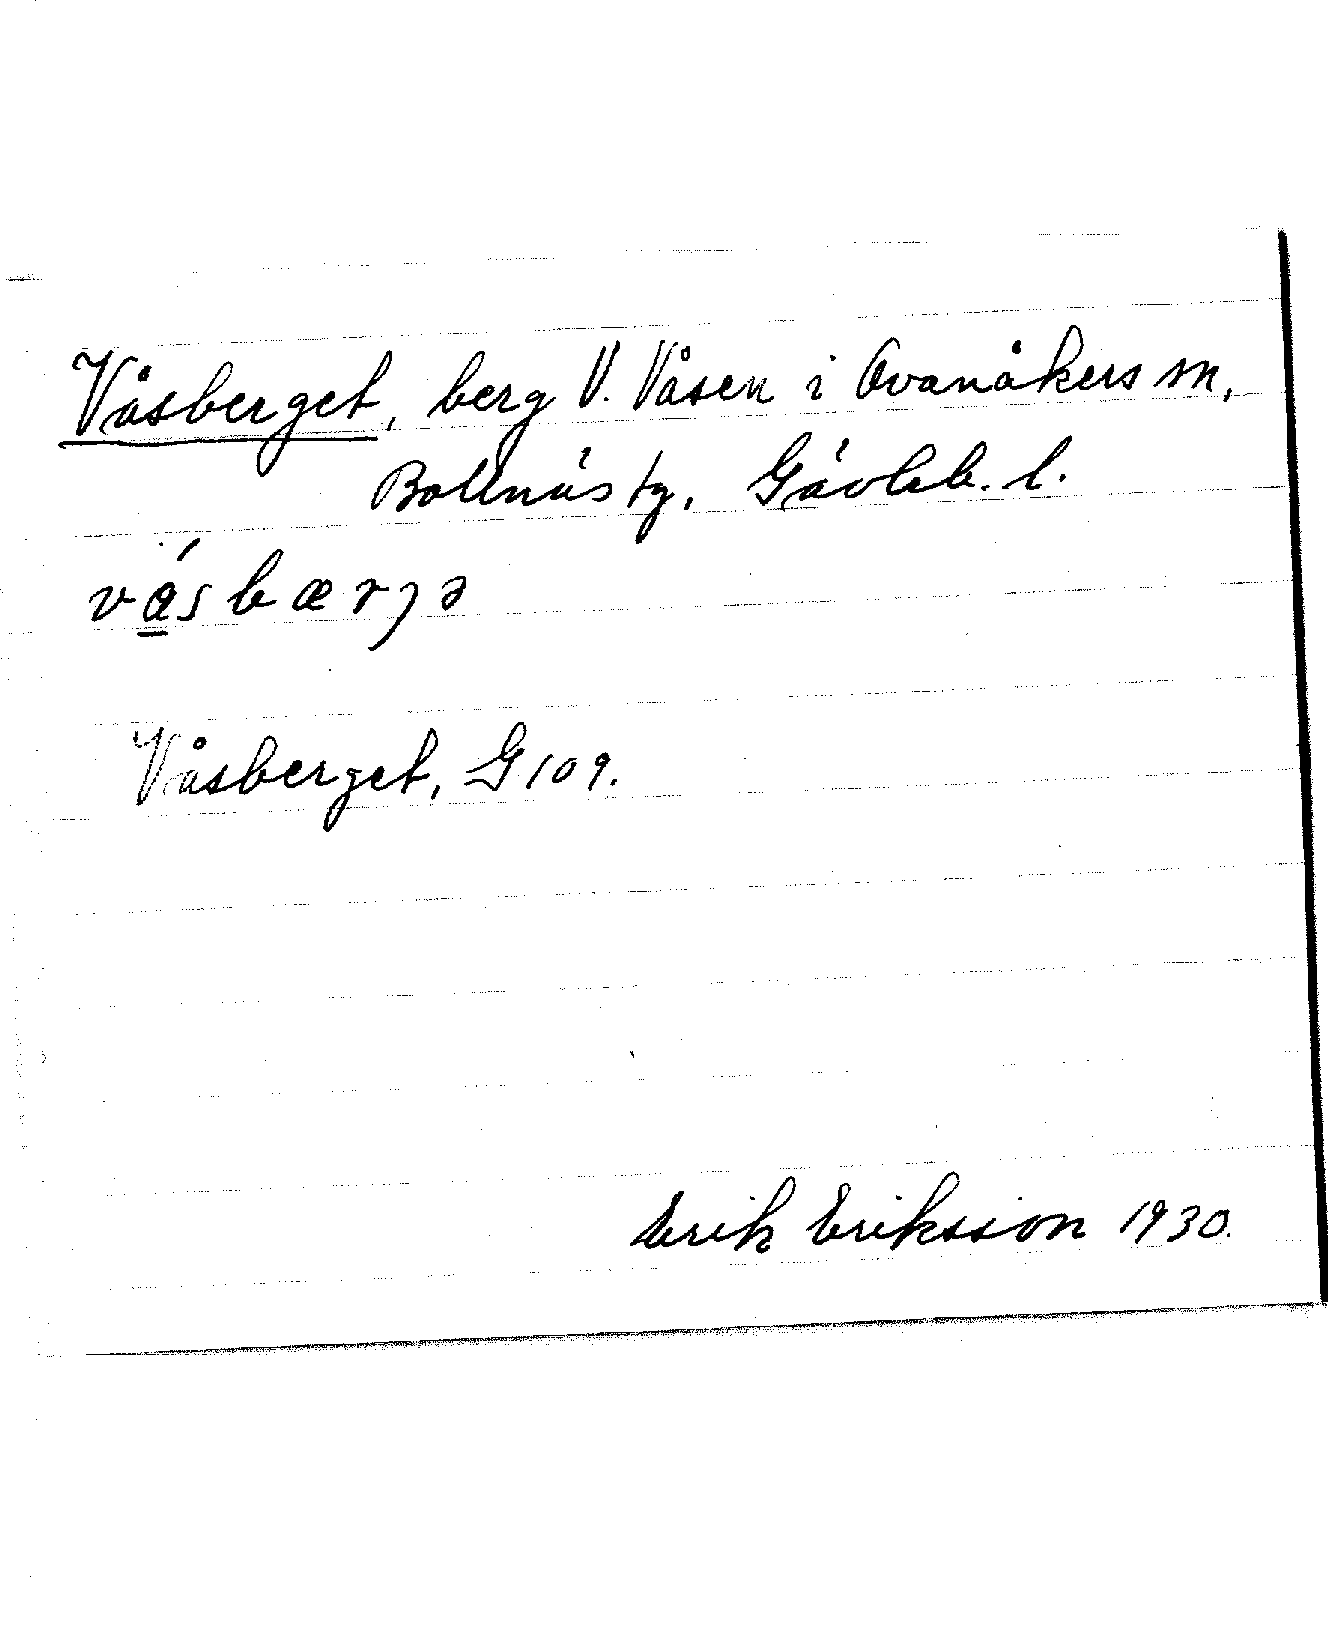 Våsberget, berg V. Våsen i Ovanåkers sn,
Bollnäs tg, Gävleb. l.
Våsberget, G 109.
Erik Eriksson 1930.